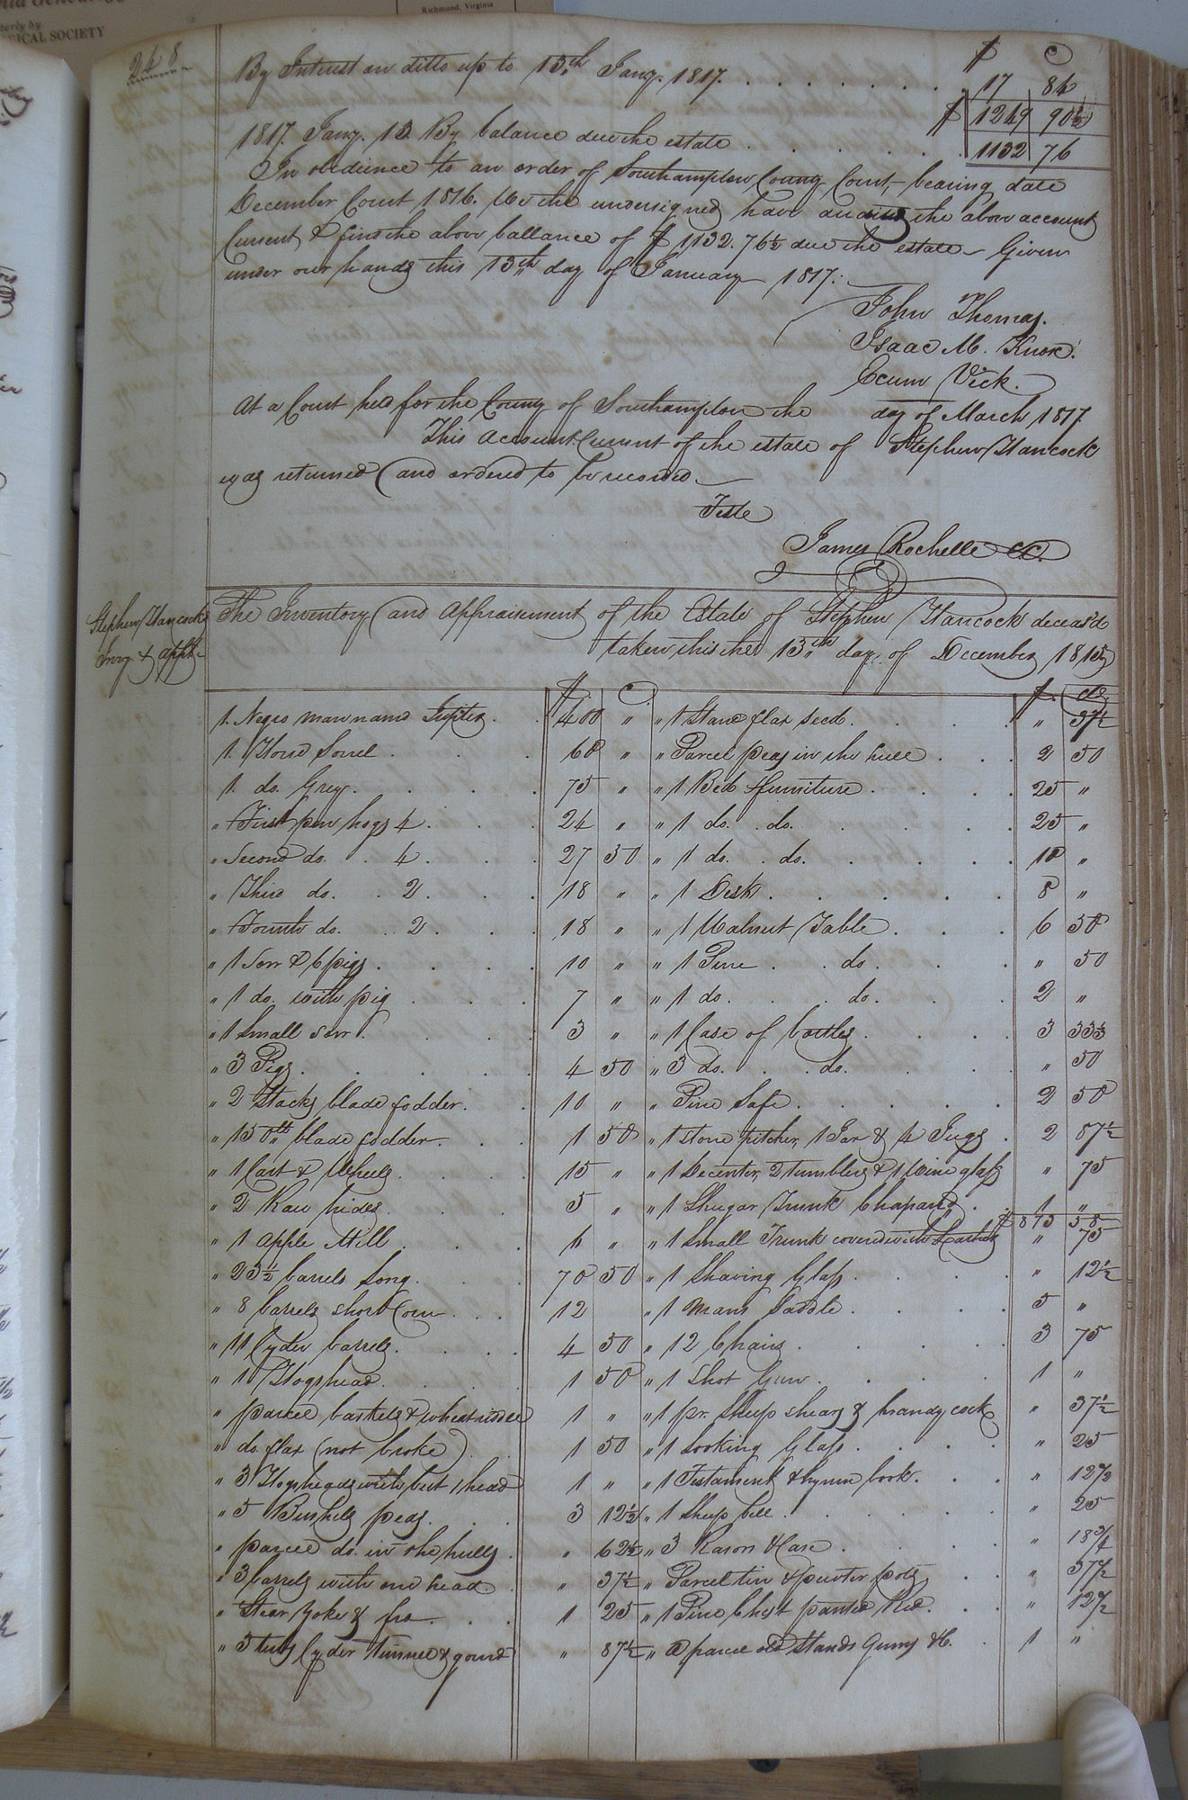 Richmond, Virginia
ICAL SOCIETY
248
$ C
By Interest on ditto up to 13th Jany. 1817. 17 84
$ 1249 90½
1817. Jany. 13 By balance due the estate 1132 76
In obedience to an order of Southampton County Court, bearing date
December Court 1816. We the undersigned have audited the above account
Current & find the above ballance of $ 1132.76½ due the estate - Given
under our hands this 13th day of January 1817:
John Thomas.
Isaac M. Knox.
Vick.
At a Court held for the County of Southampton the day of March 1817
This Account Current of the estate of Stephen Hancock
was returned and ordered to be recorded.
Teste
James Rochelle CC.
Stephen Hancocks
Invy. & appt.
The Inventory and Appraisement of the Estate of Stephen Hancock deceas'd
taken this the 13th day of December 1815
$ C
1. Negro man named Jupiter 400 "
1. Horse Sorrel 60 "
1. do. Grey. 75 "
" First pen hogs 4. 24 "
" Second do. 4. 27 50
" Third do. 2. 18 "
" Fourth do. 2. 18 "
" 1 Sow & 6 pigs. 10 "
" 1 do. with pig 7 "
" 1 Small sow. 3 "
" 3 Pigs. 4 50
" 2 Stacks blade fodder. 10 "
" 150 lb blade fodder. 1 50
" 1 Cart & Wheels 15 "
" 2 Raw hides 5 "
" 1 apple Mill "
" 23½ barrels long. 70 50
" 8 barrels short Corn 12
" 11 Cyder barrels. 4 50
" 1 Hogshead. 1 50
" parcel baskets & wheat riddle 1 "
" do. flax (not broke) 1 50
" 3 Hogsheads with but 1 head 1 "
" 5 Bushels peas. 3 12½
" parcel do. in the hulls. " 62½
" 3 barrels with one head " 37½
" Stear Yoke & 1 25
" 5 tubs Cyder tunnel & gourd " 87½
$ cts
" 1 Stand flax seed. " 37½
" Parcel peas in the hull 2 50
" 1 Bed & furniture. 25 "
" 1 do. do. 25 "
" 1 do. do. 10 "
" 1 Desk. 8 "
" 1 Walnut Table 6 50
" 1 Pine do. " 50
" 1 do. do. 2 "
" 1 Case of bottles. 3 33⅓
" 3 do. do. " 50
" Pine Safe. 2 50
" 1 stone pitcher, 1 Jar & 4 Jugs 2 87½
" 1 Decenter, 2 tumblers & 1 Wine glass " 75
" 1 Shugar Trunk 1 "
$ 58
" 1 Small Trunk covered with Leather " 75
" 1 Shaving Glass. " 12½
" 1 mans Saddle. 5 "
" 12 Chairs. 3 75
" 1 Shot Gun. 1 "
" 1 pr. Sheep shears & brandy cock " 37½
" 1 Looking Glass. " 25
" 1 Testament & hymn book. " 12½
" 1 Sheep bell. " 25
" 3 Rasors & Case. " 18¾
" Parcel tin & pewter pots " 37½
" 1 Pine Chest painted Red. " 12½
" a parcel old Stands Gums &c. 1 "